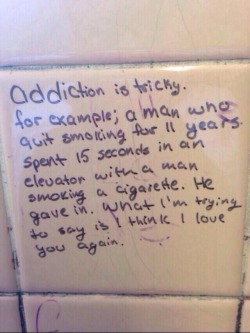 addiction is tricky.
for example; a man who
quit smoking for 11 years
spent 15 seconds in an
elevator with a man
smoking a cigarette. He
gave in. What I'm trying
to say is I think I love
you again.